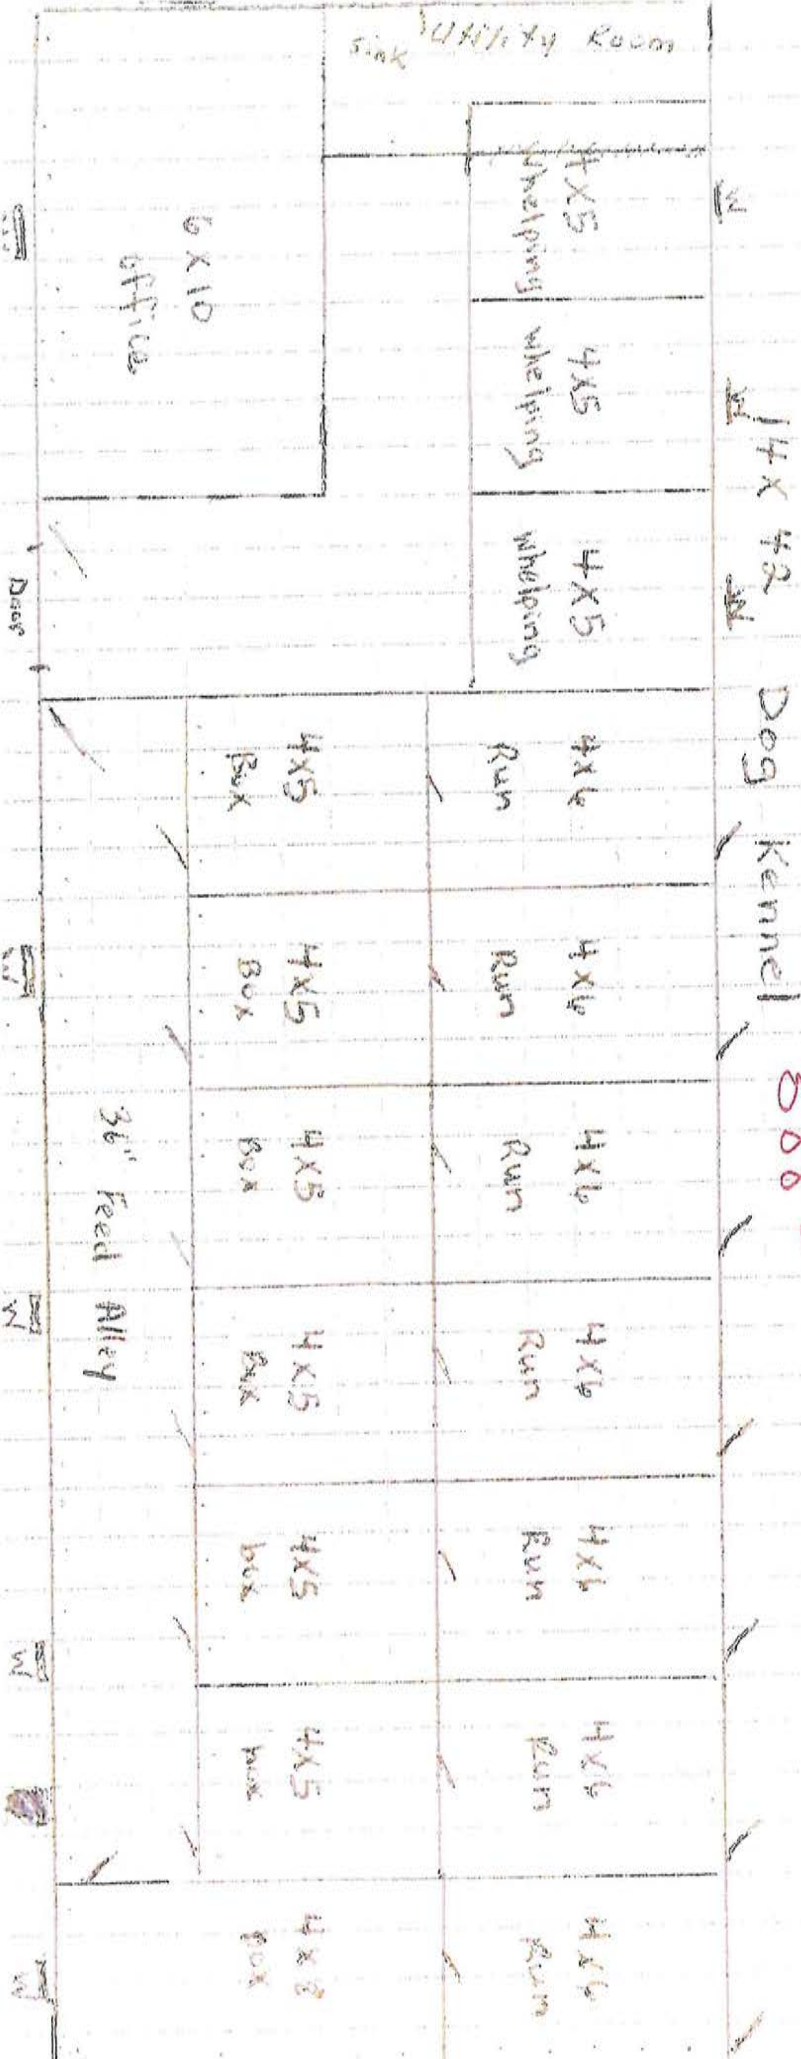 14 x 42 Dog Kennel
sink
Utility Room
W
W
W
4x5
Whelping
4x5
whelping
4x5
whelping
6 x 10
office
Door
4x6
Run
4x6
Run
4x6
Run
4x6
Run
4x6
Run
4x6
Run
4x6
Run
4x5
Box
4x5
Box
4x5
Box
4x5
Box
4x5
box
4x5
box
4x8
box
36" Feed Alley
W
W
W
W
W